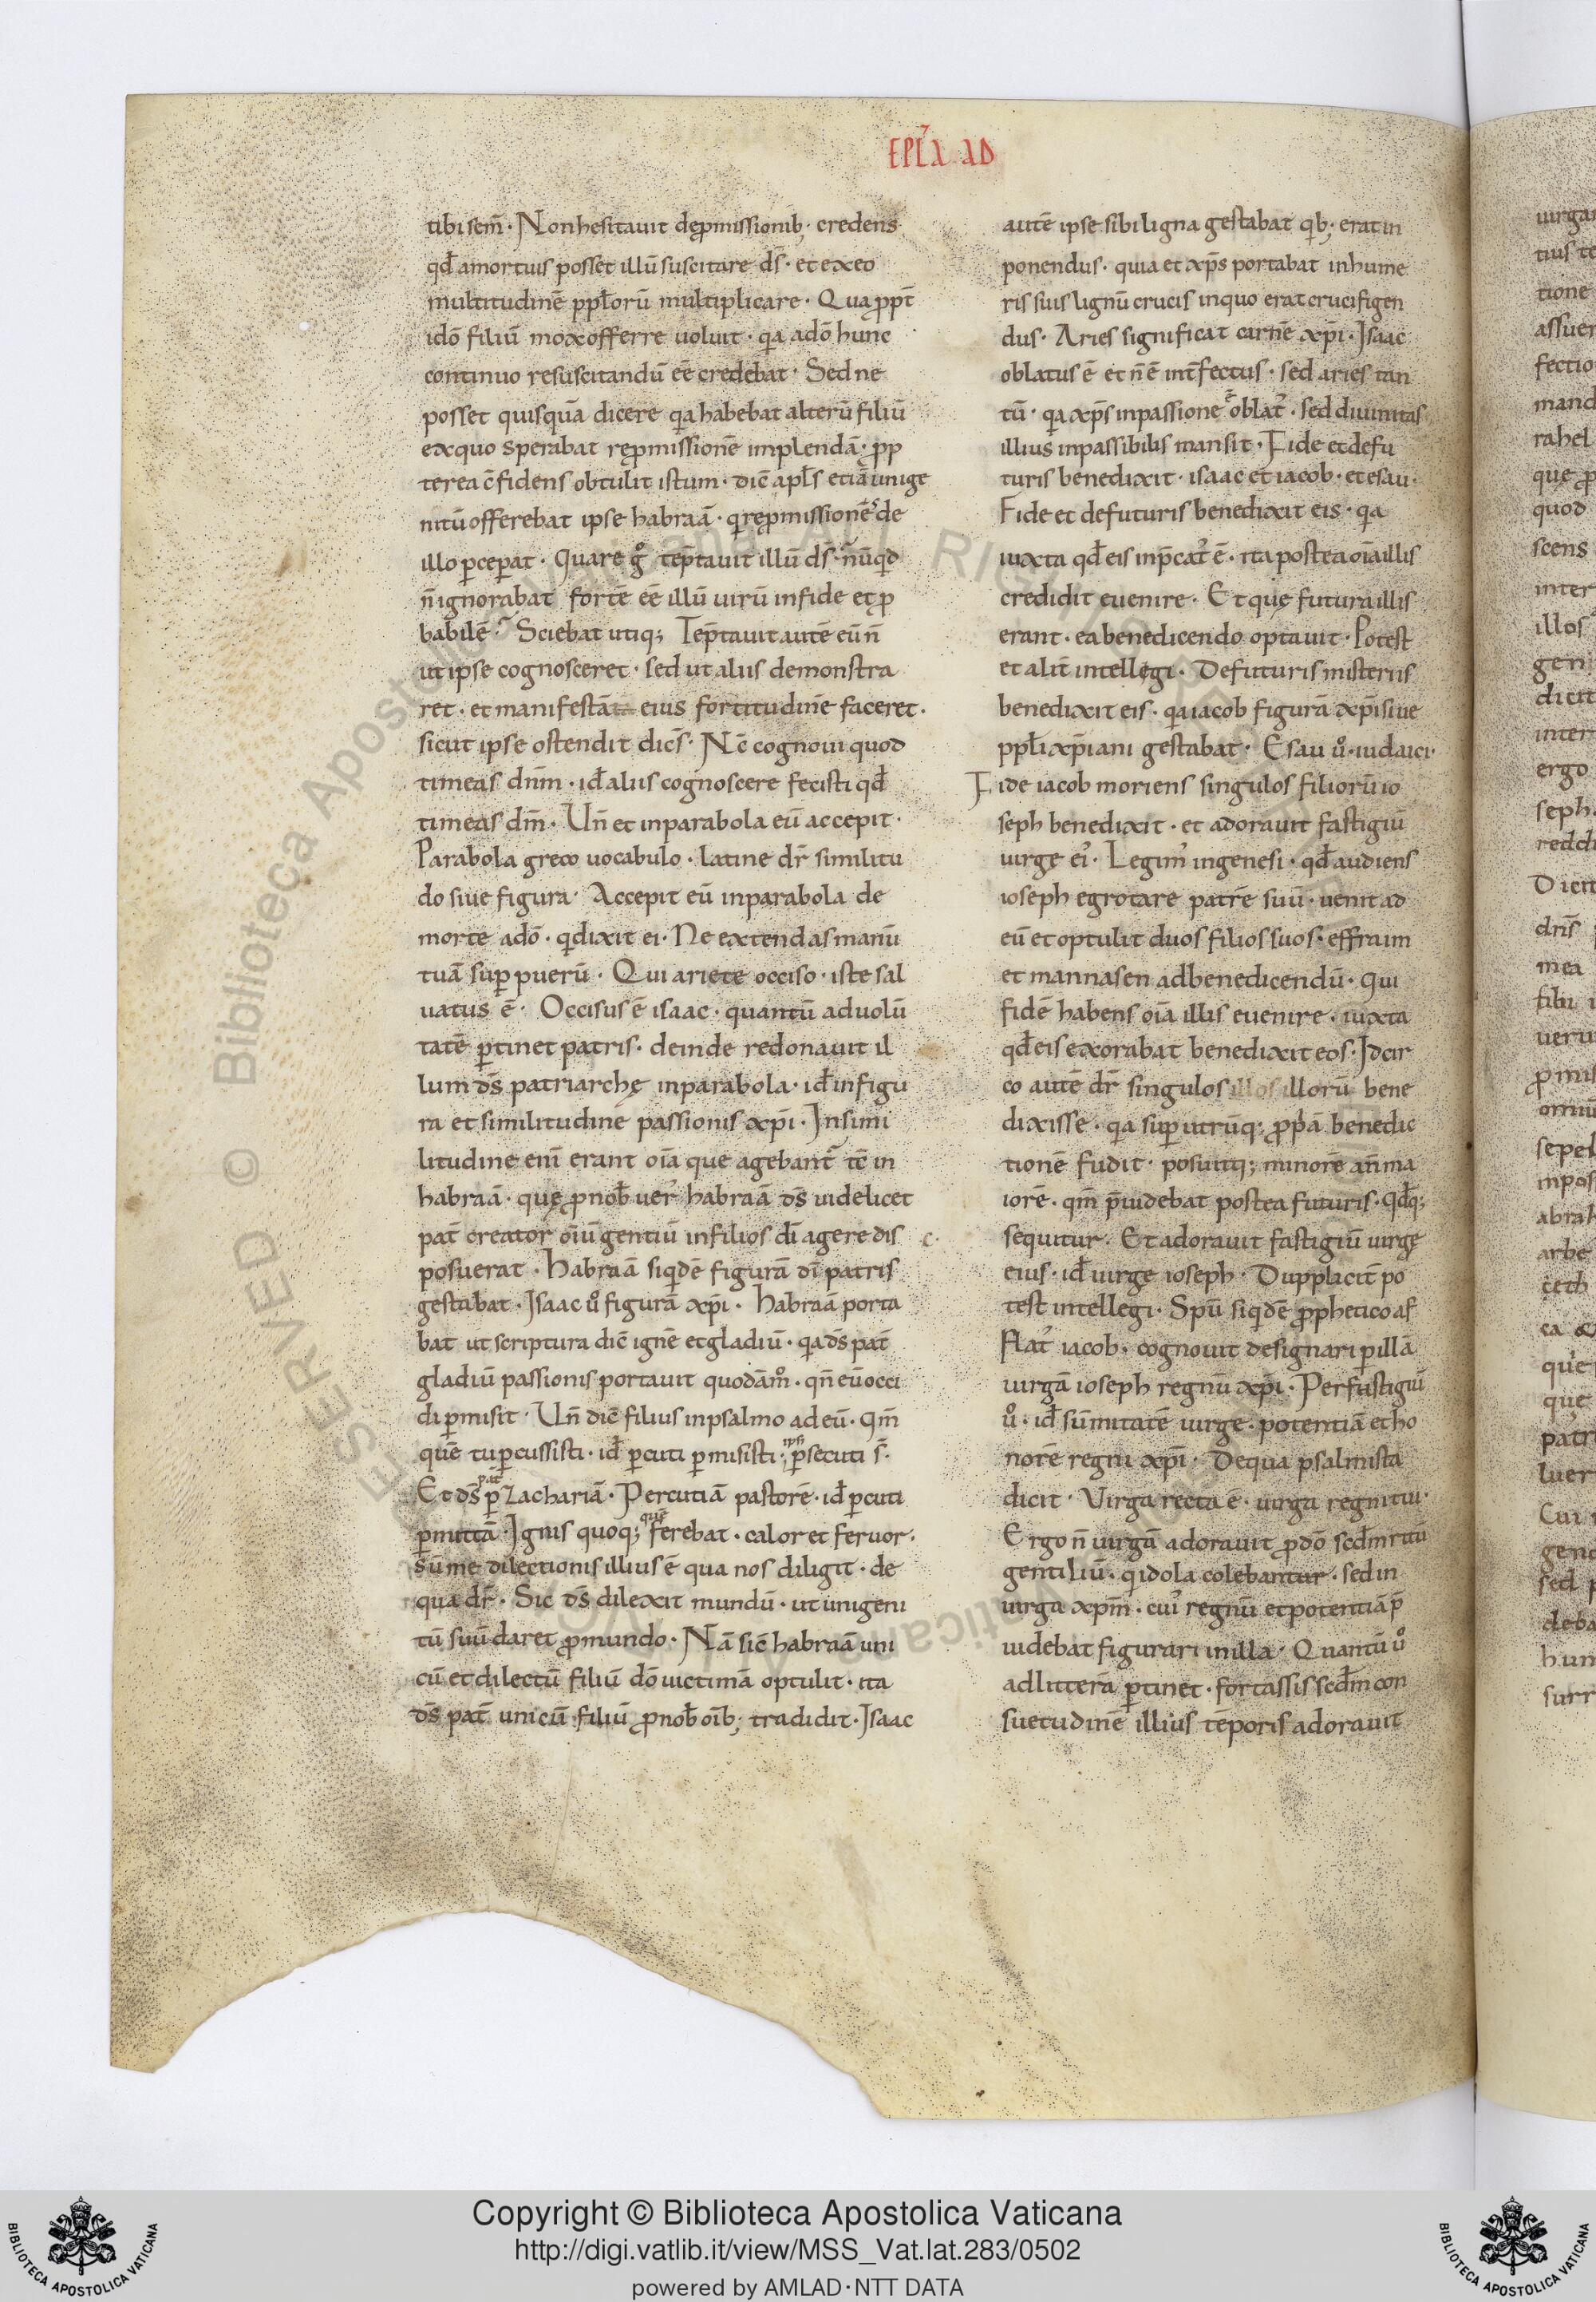 EPĹA AD
tibi sem̄· Non hesitauit de ꝓmissionib; credens
qd̄ a mortuis posset illū suscitare ds̄· et ex eo
multitudinē ppl̄orū multiplicare· Qua ꝓpt̄
idō filiū mox offerre uoluit· qa adō hunc
continuo resuscitandū ēē credebat· Sed ne
posset quisquā dicere qa habebat alterū filiū
ex quo sperabat reꝓmissionē implendā· ꝓp
terea c̄fidens obtulit istum· dic̄ apl̄s etiā unige
nitū offerebat ipse habraā· qi reꝓmissionēs de
illo ꝑceꝑat· Quare gͦ tēptauit illū ds̄· nūqd
n̄ ignorabat fortē ēē illū uirū in fide et ꝓ
babilē· Sciebat utiq; Tēptauit autē eū n̄
ut ipse cognosceret· sed ut aliis demonstra
ret· et manifestā eius fortitudinē faceret·
sicut ipse ostendit dic̄s· Nc̄ cognoui quod
timeas dn̄m· id̄ aliis cognoscere fecisti qd̄
timeas dm̄· Un̄ et in parabola eū accepit·
Parabola greco uocabulo· latine dr̄ similitu
do siue figura· Accepit eū in parabola de
morte adō· qi dixit ei· Ne extendas manū
tuā suꝑ puerū· Qui ariete occiso· iste sal
uatus ē· Occisus ē isaac· quantū ad uolū
tatē ꝑtinet patris· deinde redonauit il
lum ds̄ patriarchę in parabola· id̄ in figu
ra et similitudine passionis xp̄i· In simi
litudine enī erant oīa que agebant̄ tc̄ in
habraā· quę ꝓ nob̄ uer̄ habraā ds̄ uidelicet
pat̄ creator ōiū gentiū in filios dī agere dis
posuerat· habraā siqdē figurā dī patris
gestabat· Isaac uͦ figurā xp̄i· habraā porta
bat ut scriptura dic̄ ignē et gladiū· qa ds̄ pat̄
gladiū passionis portauit quodāmͦ· qn̄ eū occi
di ꝑmisit· Un̄ dic̄ filius in psalmo ad eū· Qm̄
quē tu ꝑcussisti· id̄ ꝑcuti ꝑmisisti· ipsi ꝑsecuti s̄·
Et ds̄ pat̄ ꝑ zachariā· Percutiā pastorē· id̄ ꝑcuti
ꝑmittā· Ignis quoq; quē ferebat· calor et feruor·
sūme dilectionis illius ē qua nos diligit· de
qua dr̄· Sic ds̄ dilexit mundū· ut unigeni
tū suū daret ꝓ mundo· Nā sic̄ habraā uni
cū et dilectū filiū dō uictimā optulit· ita
ds̄ pat̄ unicū filiū ꝓ nob̄ oīb; tradidit· Isaac
autē ipse sibi ligna gestabat qib; erat in
ponendus· quia et xp̄s portabat in hume
ris suis lignū crucis in quo erat crucifigen
dus· Aries significat carnē xp̄i· Isaac
oblatus ē et n̄ ē int̄fectus· sed aries tan
tū· qa xp̄s in passione ē oblat᾽· sed diuinitas
illius inpassibilis mansit· Fide et de fu
turis benedixit· isaac et iacob· et esau·
Fide et de futuris benedixit eis· qa
iuxta qd̄ eis inp̄cat᾽ ē· ita postea oīa illis
credidit euenire· Et quę futura illis
erant· ea benedicendo optauit· Potest
et alit̄ intellegi· De futuris misteriis
benedixit eis· qa iacob figurā xp̄i siue
ppl̄i xp̄iani gestabat· Esau uͦ· iudaici·
Fide iacob moriens singulos filiorū io
seph benedixit· et adorauit fastigiū
uirge ei᾽· Legim᾽ in genesi· qd̄ audiens
ioseph egrotare patrē suū· uenit ad
eū et optulit duos filios suos· effraim
et mannasen ad benedicendū· Qui
fidē habens oīa illis euenire· iuxta
qd̄ eis exorabat benedixit eos· Idcir
co autē dr̄ singulos illos illorū bene
dixisse· qa suꝑ utrūq; ꝓpā benedic
tionē fudit· posuitq; minorē an̄ ma
iorē· qm̄ p̄uidebat postea futuris· Qd̄q;
sequitur· Et adorauit fastigiū uirgę
eius· id̄ uirge ioseph· Dupplicit̄ po
test intellegi· Spū siqdē ꝓphetico af
flat᾽ iacob· cognouit designari ꝑ illā
uirgā ioseph regnū xp̄i· Per fastigiū
uͦ· id̄ sūmitatē uirge· potentiā et ho
norē regni xp̄i· De qua psalmista
dicit· Virga recta ē· uirga regni tui·
Ergo n̄ uirgā adorauit ꝓ dō scd̄m ritū
gentiliū· qi idola colebantur· sed in
uirga xp̄m· cui᾽ regnū et potentiā p̄
uidebat figurari in illa· Quantū uͦ
ad litterā ꝑtinet· fortassis scd̄m con
suetudinē illius tēporis adorauit
Copyright © Biblioteca Apostolica Vaticana
http://digi.vatlib.it/view/MSS_Vat.lat.283/0502
powered by AMLAD·NTT DATA